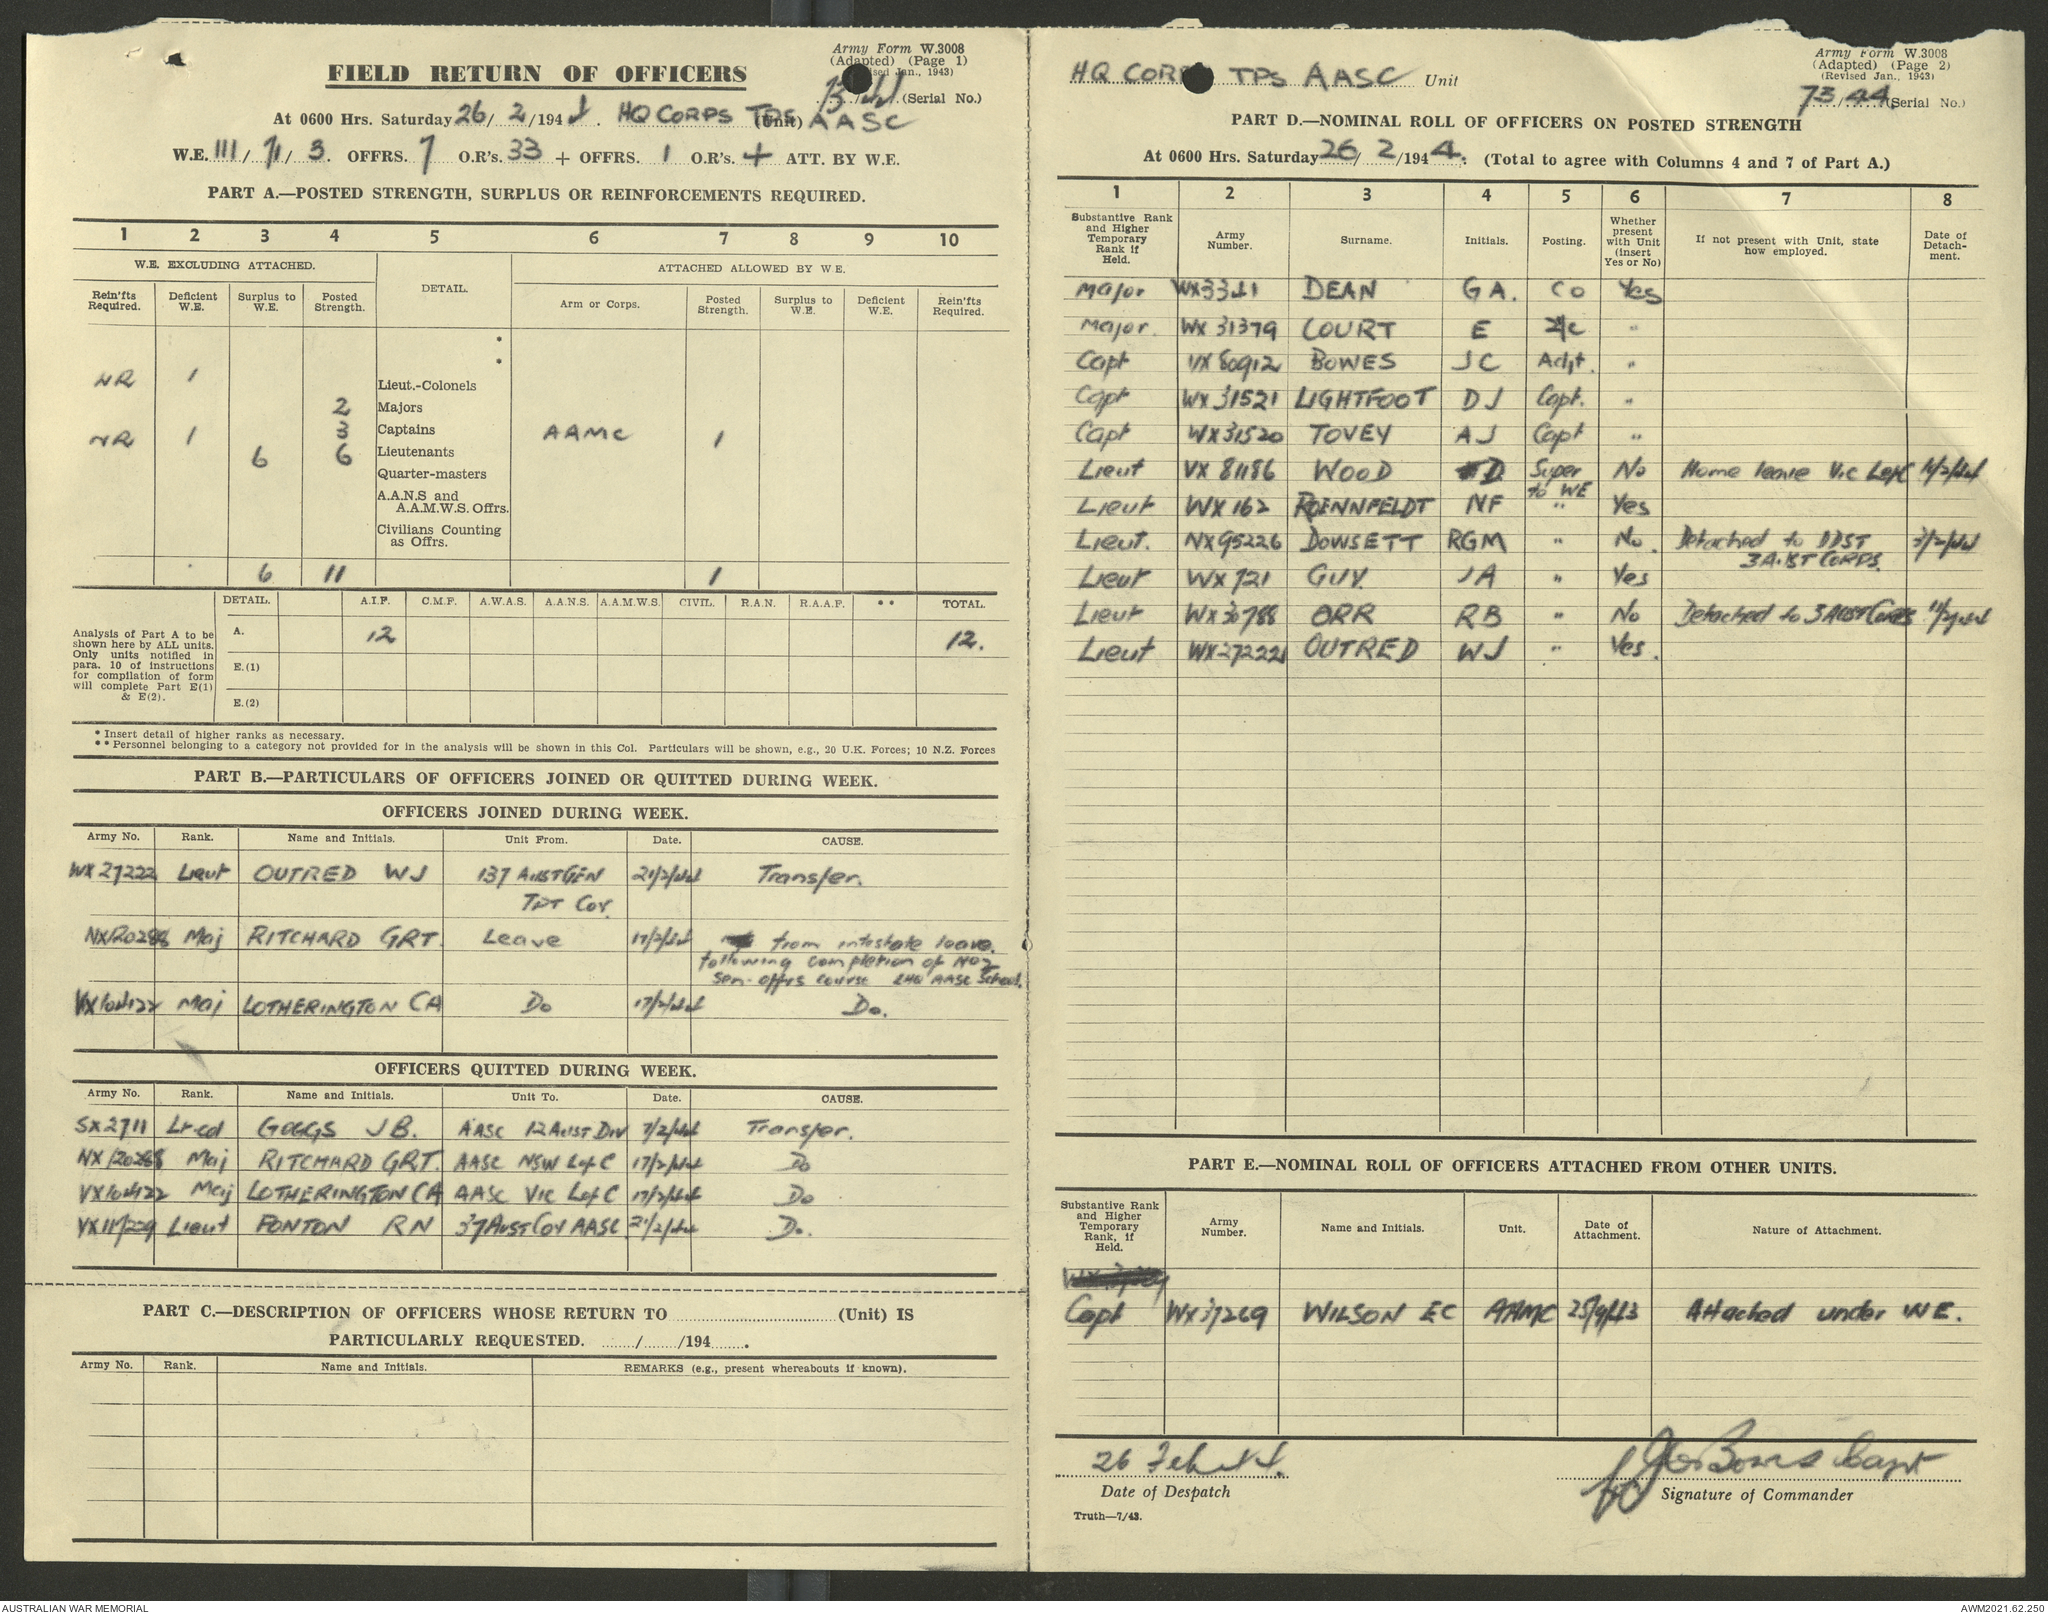 Army Form W.3008
(Adapted) (Page 1)
FIELD RETURN OF OFFICERS
(Serial No.)
At 0600 Hrs. Saturday 26/2/1944. HQ CORPS TPS (Unit) AASC
W.E. III/71/3. OFFRS. 7 O.R's. 33 + OFFRS. 1 O.R's. + ATT. BY W.E.
PART A.—POSTED STRENGTH, SURPLUS OR REINFORCEMENTS REQUIRED.
1 2 3 4 5 6 7 8 9 10
W.E. EXCLUDING ATTACHED. DETAIL. ATTACHED ALLOWED BY W.E.
Rein'fts Required. Deficient W.E. Surplus to W.E. Posted Strength. Arm or Corps. Posted Strength. Surplus to W.E. Deficient W.E. Rein'fts Required.
NR 1 Lieut.-Colonels
2 Majors
NR 1 3 Captains AAMC 1
6 6 Lieutenants
Quarter-masters
A.A.N.S and A.A.M.W.S. Offrs.
Civilians Counting as Offrs.
6 11 1
DETAIL. A.I.F. C.M.F. A.W.A.S. A.A.N.S. A.A.M.W.S. CIVIL. R.A.N. R.A.A.F. ** TOTAL.
Analysis of Part A to be shown here by ALL units. Only units notified in para. 10 of instructions for compilation of form will complete Part E(1) & E(2).
A. 12 12.
E.(1)
E.(2)
* Insert detail of higher ranks as necessary.
** Personnel belonging to a category not provided for in the analysis will be shown in this Col. Particulars will be shown, e.g., 20 U.K. Forces; 10 N.Z. Forces
PART B.—PARTICULARS OF OFFICERS JOINED OR QUITTED DURING WEEK.
OFFICERS JOINED DURING WEEK.
Army No. Rank. Name and Initials. Unit From. Date. CAUSE.
WX27222 Lieut OUTRED WJ 137 AUST GEN 21/2/44 Transfer.
TPT Coy.
NX120288 Maj RITCHARD GRT. Leave 17/2/44 from intestate leave.
following completion of NO2
Sen. offrs course LHQ AASC School.
VX104122 Maj LOTHERINGTON CA Do 17/2/44 Do.
OFFICERS QUITTED DURING WEEK.
Army No. Rank. Name and Initials. Unit To. Date. CAUSE.
SX2711 Lt-col GOGGS JB. AASC 12 AUST DIV 7/2/44 Transfer.
NX120288 Maj RITCHARD GRT. AASC NSW LofC 17/2/44 Do
VX104122 Maj LOTHERINGTON CA AASC VIC LofC 17/2/44 Do
VX117229 Lieut FONTON RN 37 AUST COY AASC 21/2/44 Do.
PART C.—DESCRIPTION OF OFFICERS WHOSE RETURN TO ........ (Unit) IS
PARTICULARLY REQUESTED. ......./......./194.......
Army No. Rank. Name and Initials. REMARKS (e.g., present whereabouts if known).
Army Form W.3008
(Adapted) (Page 2)
(Revised Jan., 1943)
HQ CORPS TPS AASC Unit
73/44 (Serial No.)
PART D.—NOMINAL ROLL OF OFFICERS ON POSTED STRENGTH
At 0600 Hrs. Saturday 26/2/1944. (Total to agree with Columns 4 and 7 of Part A.)
1 2 3 4 5 6 7 8
Substantive Rank and Higher Temporary Rank if Held. Army Number. Surname. Initials. Posting. Whether present with Unit (insert Yes or No) If not present with Unit, state how employed. Date of Detachment.
Major WX3341 DEAN GA. CO Yes
Major. WX31379 COURT E 2/c "
Capt VX80912 BOWES JC Adjt. "
Capt WX31521 LIGHTFOOT DJ Capt. "
Capt WX31520 TOVEY AJ Capt "
Lieut VX81186 WOOD D Super to WE No Home leave Vic LofC
Lieut WX162 ROENNFELDT NF " Yes
Lieut. NX95226 DOWSETT RGM " No. Detached to DDST 3 AUST CORPS. 3/2/44
Lieut WX721 GUY. JA " Yes
Lieut WX30788 ORR RB " No Detached to 3 AUST CORPS 11/2/44
Lieut WX27222 OUTRED WJ " Yes.
PART E.—NOMINAL ROLL OF OFFICERS ATTACHED FROM OTHER UNITS.
Substantive Rank and Higher Temporary Rank, if Held. Army Number. Name and Initials. Unit. Date of Attachment. Nature of Attachment.
Capt WX37269 WILSON EC AAMC 25/9/43 Attached under WE.
26 Feb 44. JC Bowes Capt
Date of Despatch Signature of Commander
Truth—7/43.
AUSTRALIAN WAR MEMORIAL AWM2021.62.250